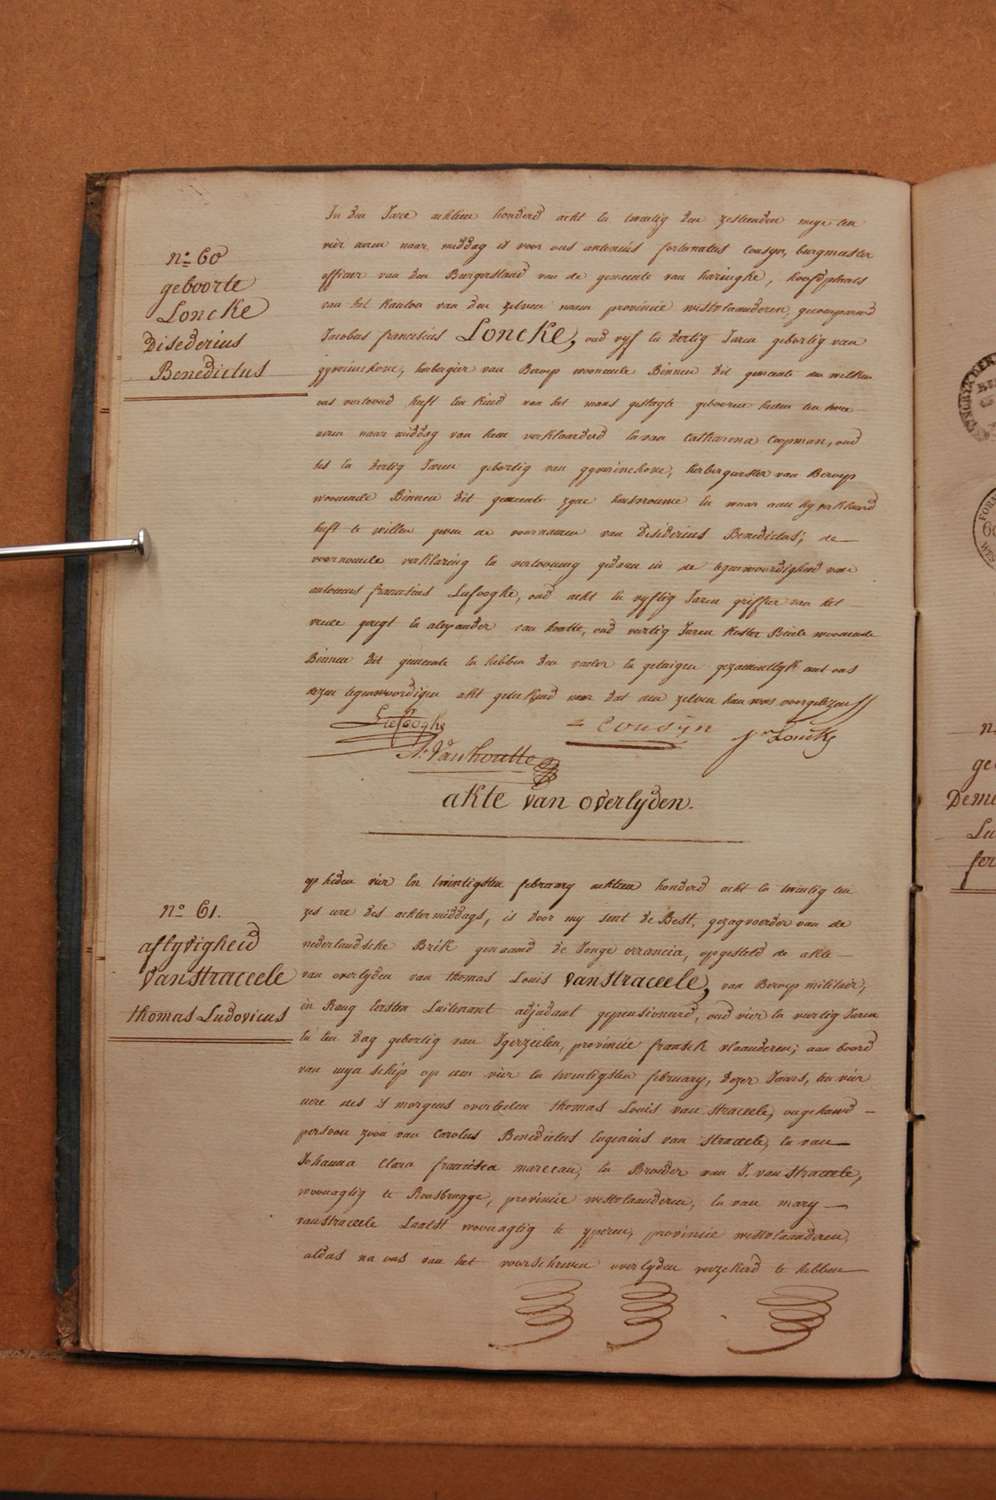 n.o 60
geboorte
Loncke
Disederius
Benedictus
In den Jare achtien honderd acht en twintig den zesthienden meye ten
vier uren naer middag is voor ons antonius fortunatus Cousyn, burgmeester
officier van den Burgerstand van de gemeente van haringhe, hoofdplaets
van het kanton van den zelven naem provincie westvlaanderen, gecompareerd
Jacobus franciscus Loncke, oud vyf en dertig Jaren geboortig van
gyverinckove, herbergier van Beroep woonende Binnen dit gemeente den welken
ons vertoond heeft een kind van het mans geslagte geboren heden ten
uren naer middag van hem verklaarderd en van Catharina Coopman, oud
en dertig Jaren geboortig van gyverinckove, herbergierster van Beroep
woonende Binnen dit gemeente zyne huisvrouwe en waer aen hy verklaard
heeft te willen geven de voornamen van Disederius Benedictus; de
voornoemde verklaring en vertooning gedaen in de tegenwoordigheid van
antonius franciscus Lefooghe, oud acht en vyftig Jaren griffier van het
vrede geregt en alexander van houtte, oud veertig Jaren koster Beide woonende
Binnen dit gemeente en hebben den vader en getuigen gezamentlyk met ons
dezen tegenwoordigen akt geteekend naer dat den zelven hun was voorgelezen
Lefooghe
Cousyn
Loncke
A. Vanhoutte
akte van overlyden.
n.o 61.
aflyvigheid
Vanstraceele
thomas Ludovicus
op heden vier en twintigsten february achtien honderd acht en twintig ten
zes ure des achtermiddags, is door my sent de Best, gezagvoerder van de
nederlandsche Brik genaamd de Jonge , opgesteld de akte
van overlyden van thomas Louis Vanstraceele, van Beroep militair,
in Rang eersten Luitenant adjudant gepensioneerd, oud vier en veertig Jaren
en een dag geboortig van , provincie fransch vlaanderen; aan boord
van myn schip op den vier en twintigsten february, dezer Jaars, ten vier
ure des 's morgens overleden thomas Louis van Straceele, ongehuwd
persoon zoon van Carolus Benedictus Eugenius van Straceele, en van
Johanna Clara francisca mareeau, en Broeder van J. van Straceele,
woonagtig te Rousbrugge, provincie westvlaanderen, en van mary
vanstraceele Laatst woonagtig te yperen, provincie westvlaanderen,
aldus na ons van het voorschreven overlyden verzekerd te hebben
n.
ge
Deme
Lu
fer